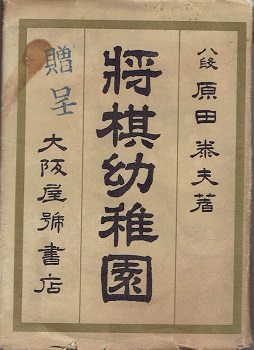 八段 原田泰夫著
将棋幼稚園
贈呈
大阪屋號書店